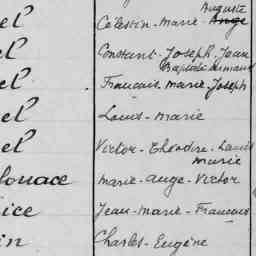 Auguste
el Célestin-Marie-Ange
el Constant-Joseph-Jean
Baptiste Armand
el Francois-Marie-Joseph
el Louis-Marie
el Victor-Théodore-Louis
Marie
louace Marie-Ange-Victor
ice Jean-Marie-Francois
in Charles-Eugène